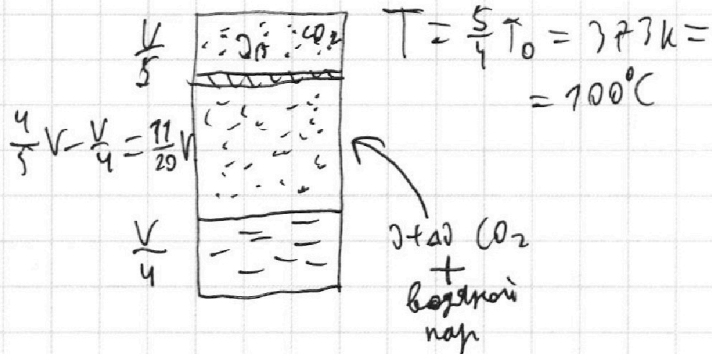 V/5
ν_в CO₂
T = 5/4 T₀ = 373K =
= 100°C
4/5 V - V/4 = 11/20 V
V/4
ν+Δν CO₂
+
водяной
пар